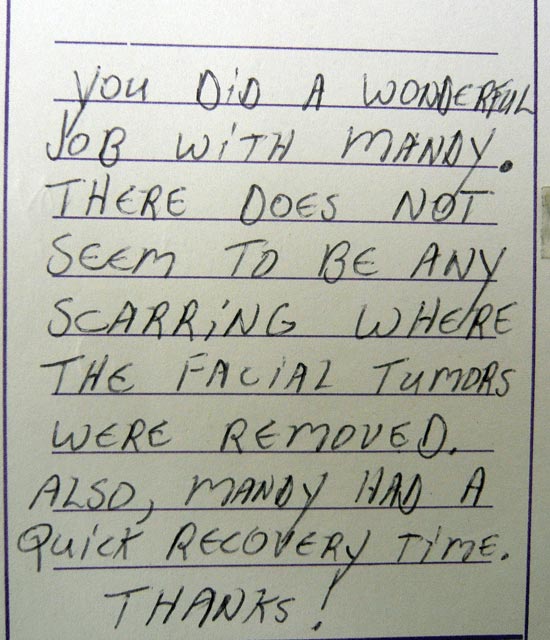 YOU DiD A WONDERFUL
JOB WiTH MANDY.
THERE DOES NOT
SEEM TO BE ANY
SCARRiNG WHERE
THE FACiAL TUMORS
WERE REMOVED.
ALSO, MANDY HAD A
QUiCK RECOVERY TiME.
THANKS!